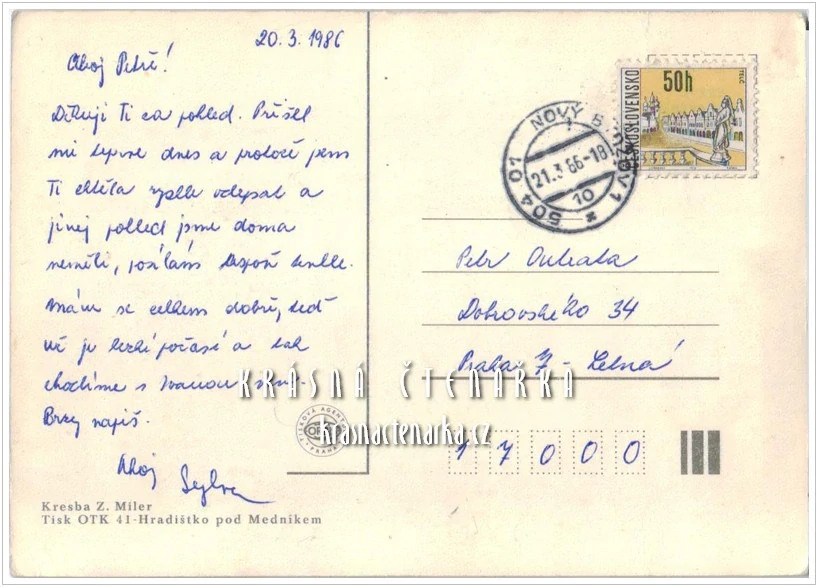 20. 3. 1986
Ahoj Petře!
Děkuji Ti za pohled. Přišel
mi teprve dnes a protože jsem
Ti chtěla rychle odepsat a
jinej pohled jsme doma
neměli, posílám aspoň tenhle.
Mám se celkem dobře, teď
už je hezké počasí a tak
chodíme s Ivanou
Brzy napiš.
Ahoj
Kresba Z. Miler
Tisk OTK 41-Hradištko pod Medníkem
TISKOVÁ AGENTURA
ORBIS
PRAHA
NOVÝ B
504 01
21.3.86-18
10
ČESKOSLOVENSKO
50h
TELČ
Petr
Dobrovského 34
Praha 7 - Letná
17000
KRÁSNÁ ČTENÁŘKA
krasnactenarka.cz